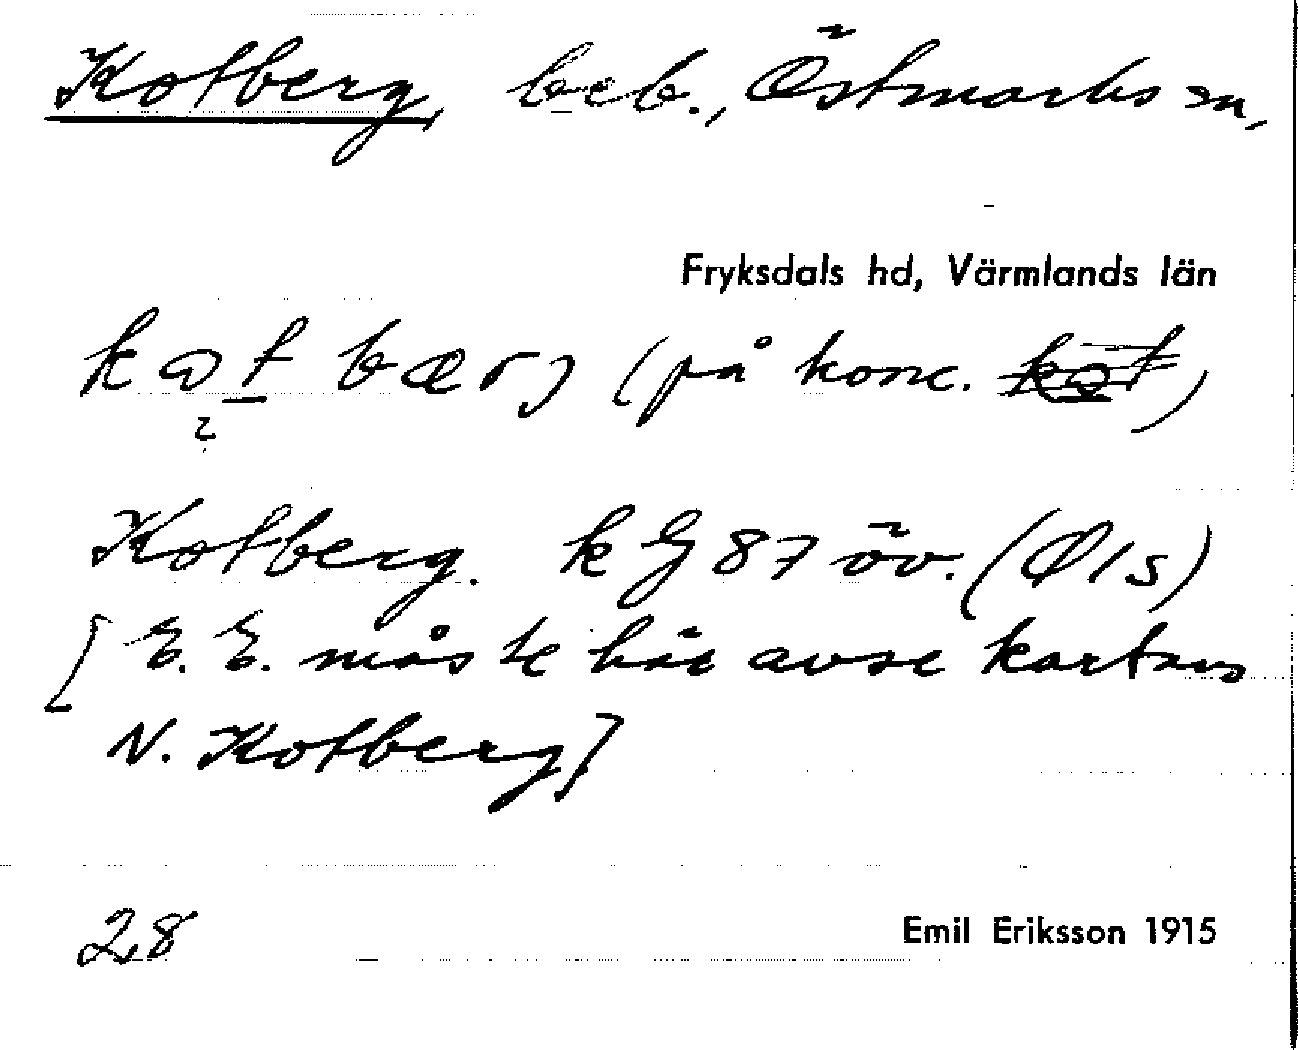 Kolberg, beb., Östmarks sn,
Fryksdals hd, Värmlands län
bær (på konc.
Kolberg. k G 87 öv. (Ø l s)
[E. E. måste här avse kartans
N. Kolberg]
28
Emil Eriksson 1915